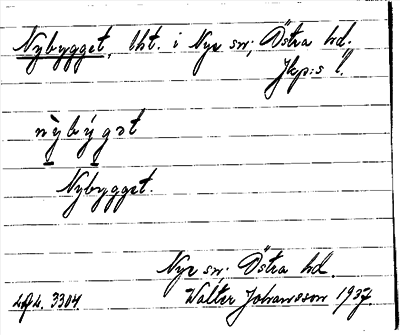 Nybygget, lht. i Nye sn; Östra hd.,
Jkp:s l.
nỳbýgət
Nybygget.
Nye sn; Östra hd.
Walter Johansson 1937.
3304.